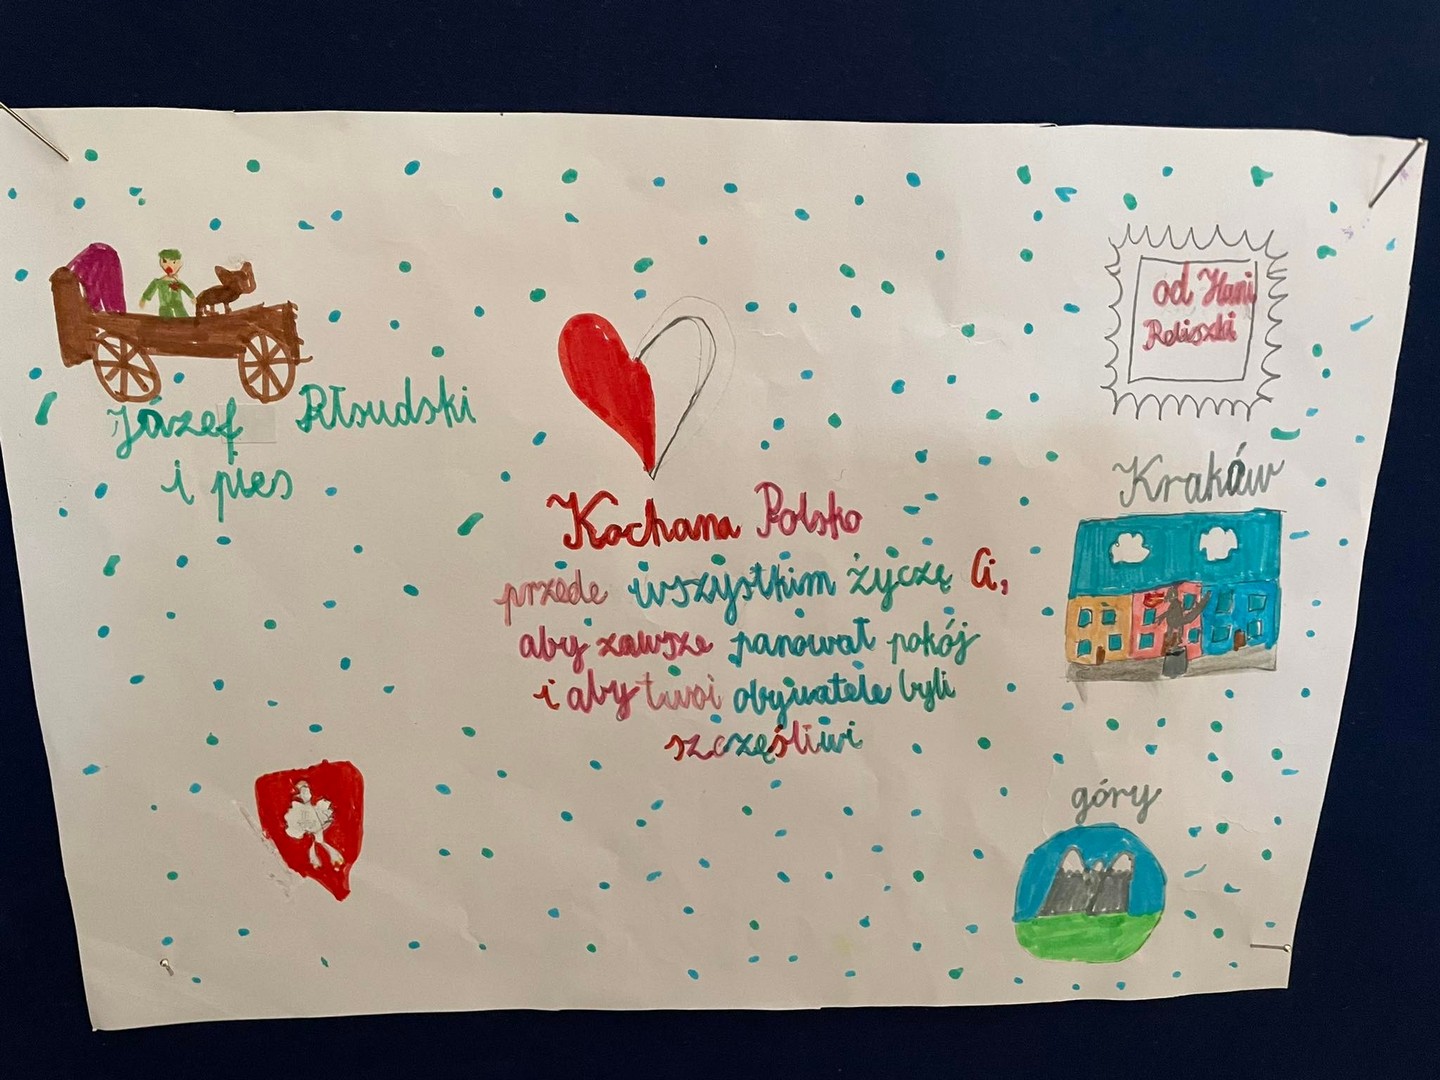 od Hani
Józef Piłsudski
i pies
Kraków
Kochana Polsko
przede wszystkim życzę Ci,
aby zawsze panował pokój
i aby twoi obywatele byli
szczęśliwi
góry